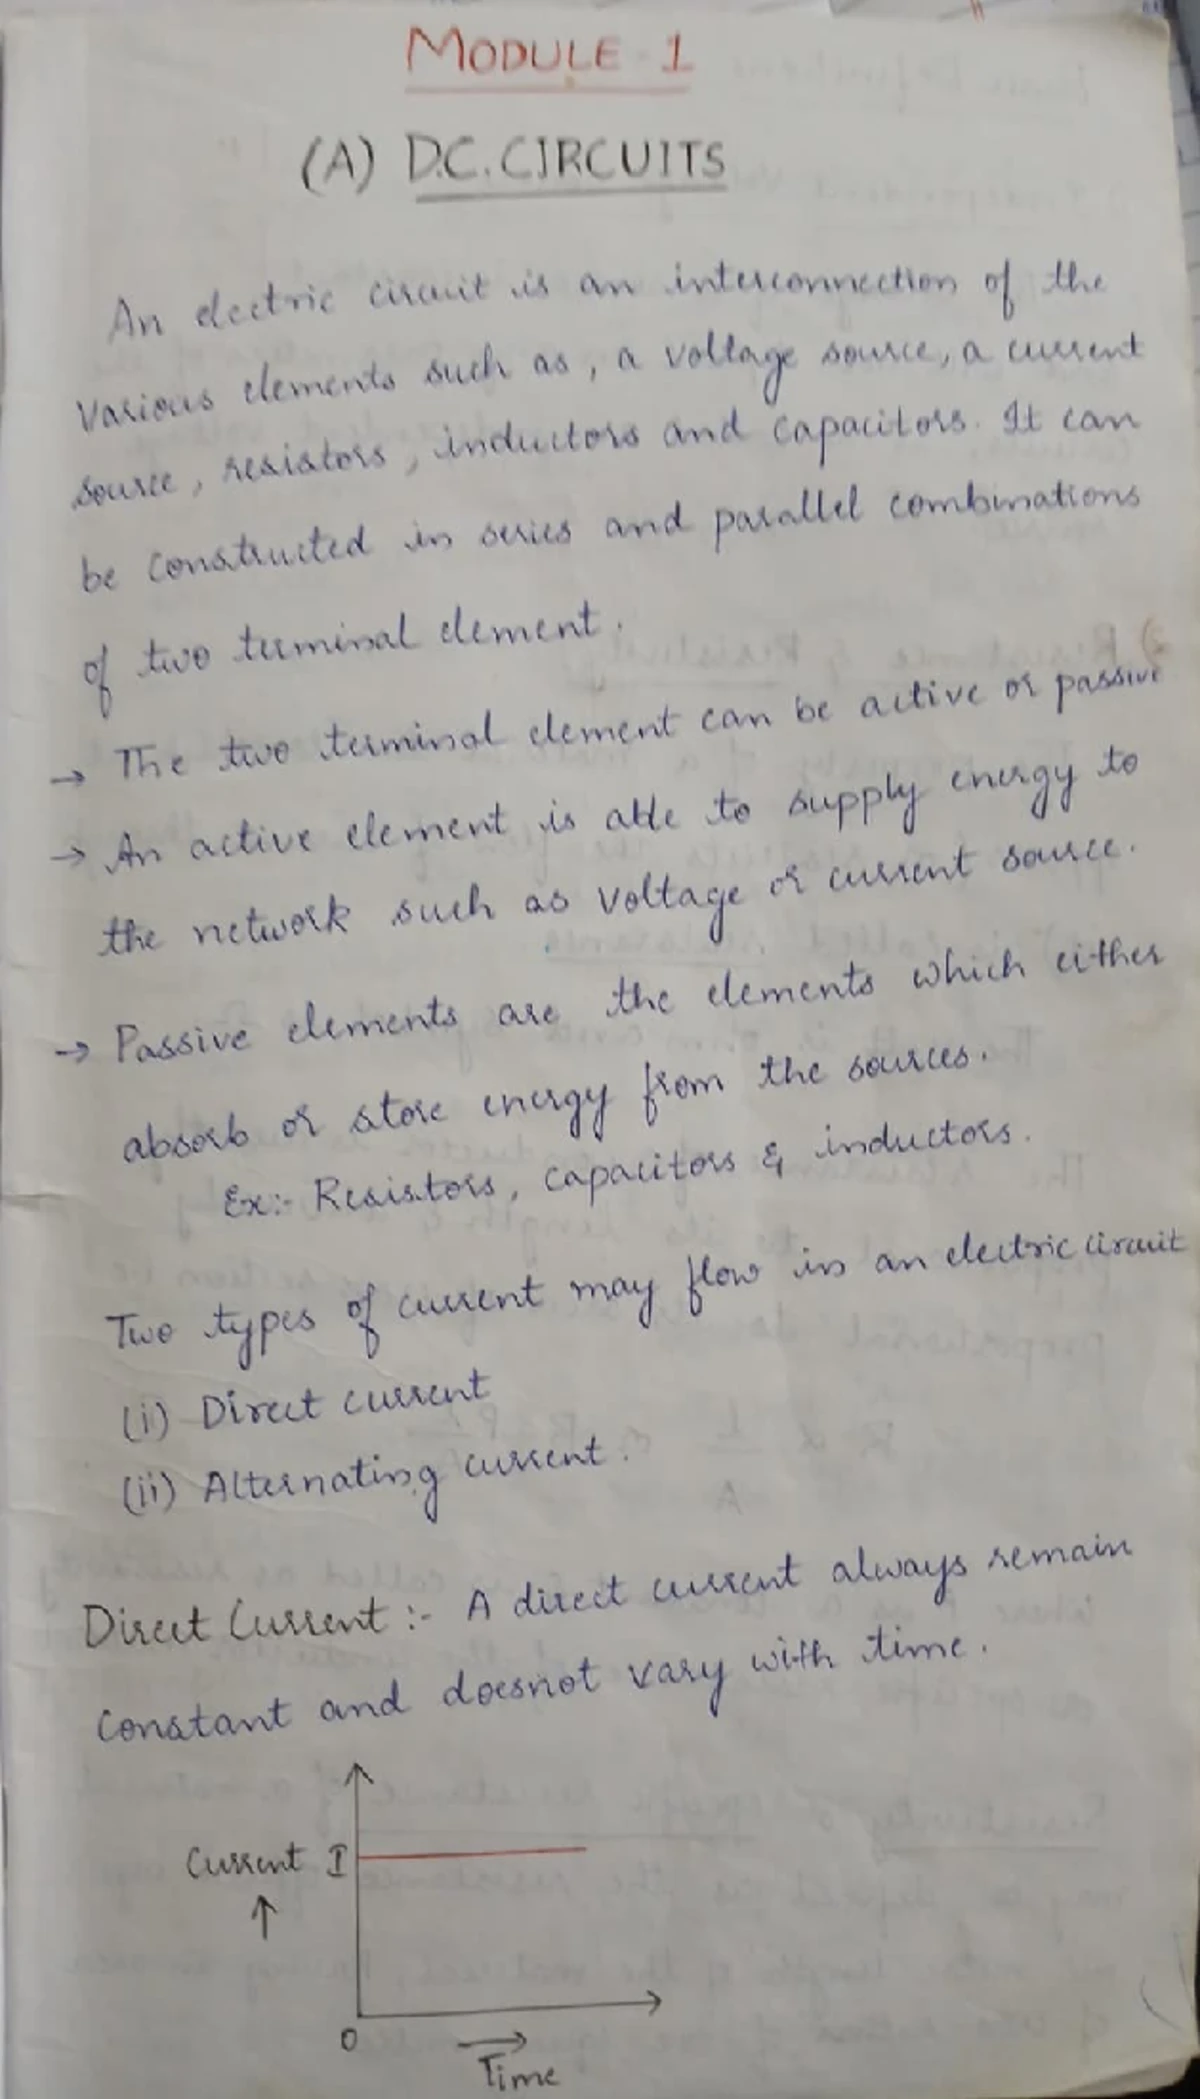 MODULE - 1
(A) D.C. CIRCUITS
An electric circuit is an interconnection of the
various elements such as, a voltage source, a current
source, resistors, inductors and capacitors. It can
be constructed in series and parallel combinations
of two terminal element.
→ The two terminal element can be active or passive
→ An active element is able to supply energy to
the network such as voltage or current source.
→ Passive elements are the elements which either
absorb or store energy from the sources.
Ex:- Resistors, capacitors & inductors.
Two types of current may flow in an electric circuit
(i) Direct current
(ii) Alternating current.
Direct Current :- A direct current always remain
constant and doesnot vary with time.
Current I
↑
0
→
Time